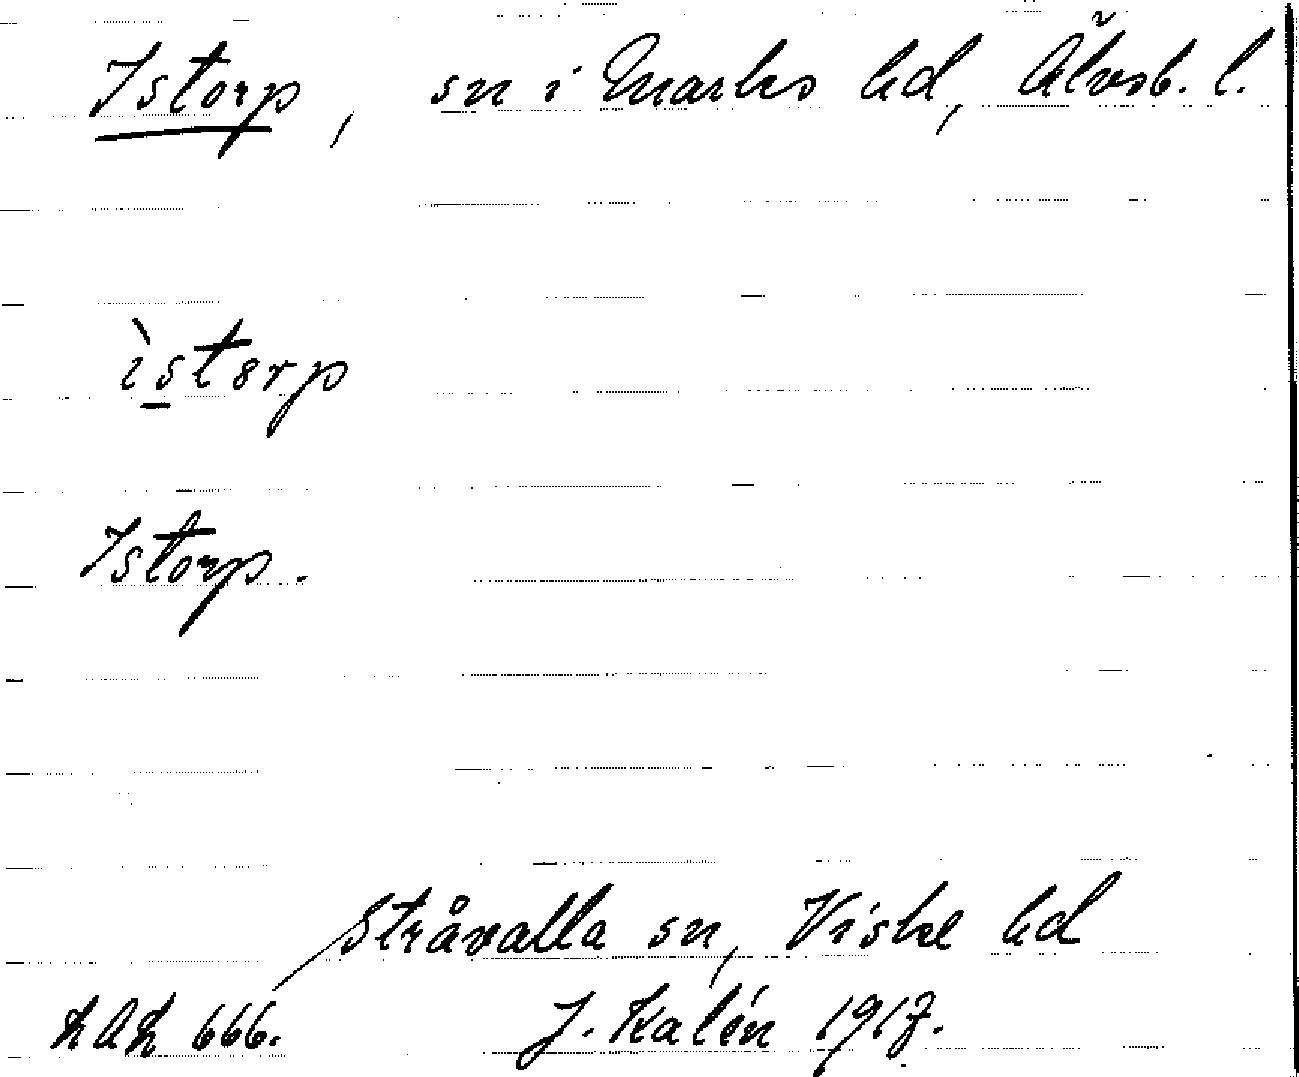 Istorp, sn i Marks hd, Älvsb. l.
ìstorp
Istorp.
Stråvalla sn, Viske hd
LAL 666. J. Kalén 1917.